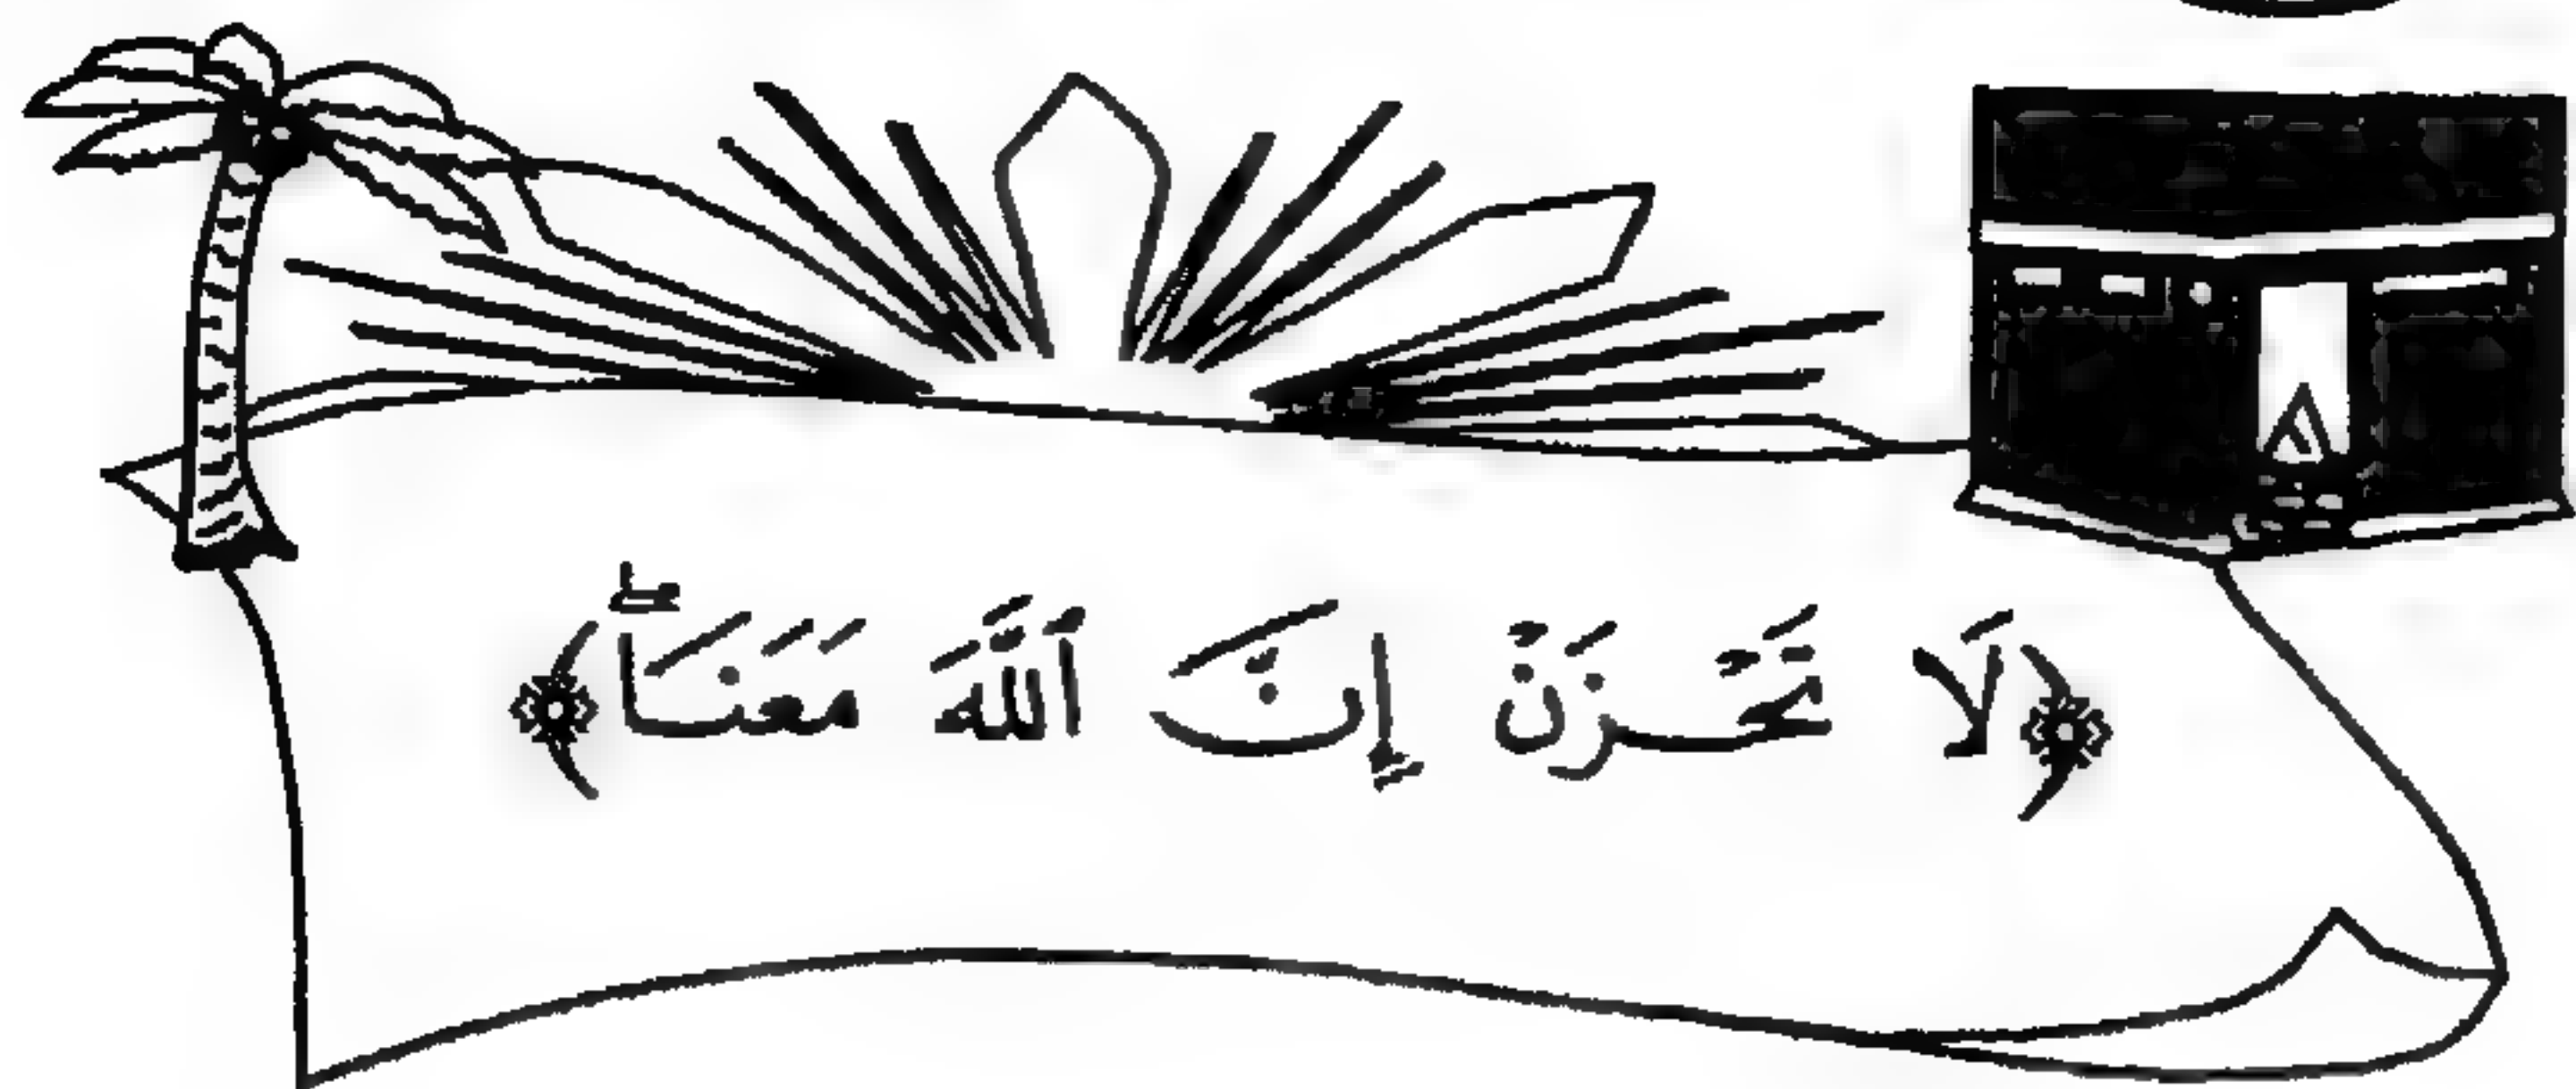 ﴿لَا تَحْـزَنْ إِنَّ ٱللَّهَ مَعَنَـاۖ﴾